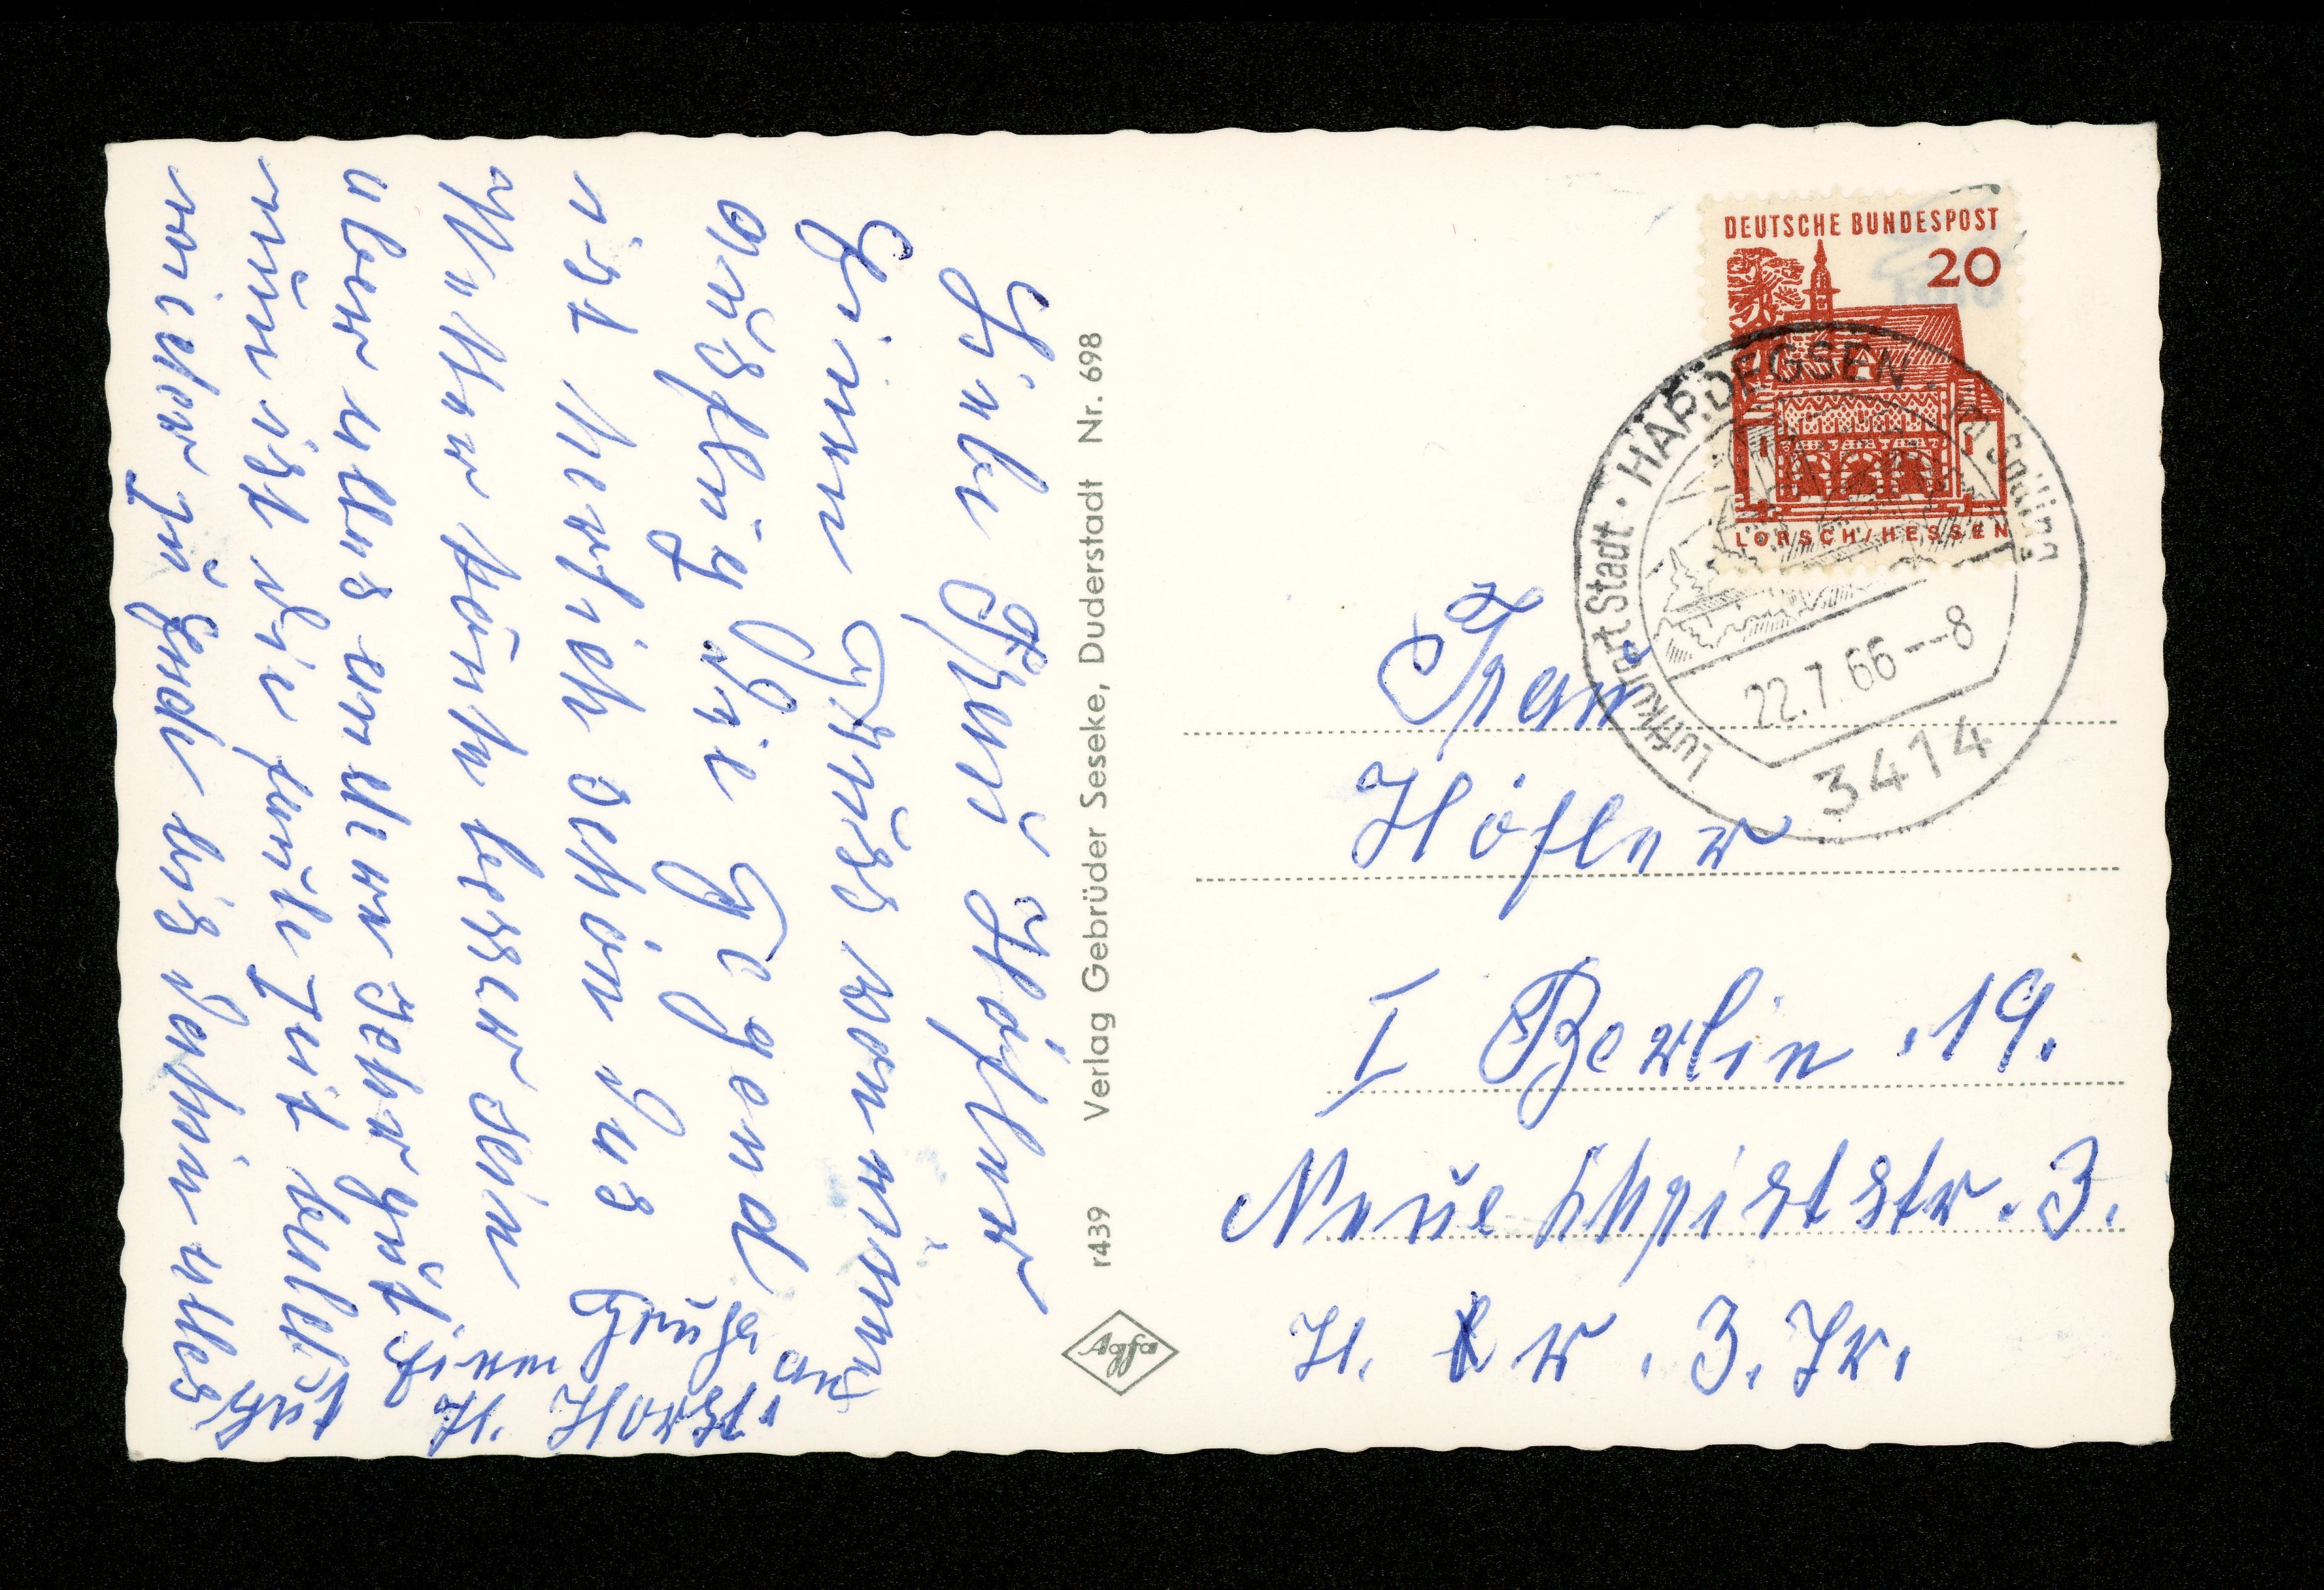 Liebe Frau Höfler
Einen Gruss vom einem
Ausflug. Die Gegend
ist herlich schön das
Wetter könte besser sein
aber alles ander sehr gut.
nun ist die faule Zeit bald
wieder zu Ende bis dahin alles
gute
Grüße an
ihren Mann
H. Horst.
r439 Verlag Gebrüder Seseke, Duderstadt Nr. 698
Agfa
DEUTSCHE BUNDESPOST
20
LORSCH/HESSEN
Luftkurort Stadt · HARDEGSEN · a. Solling
22.7.66--8
3414
Frau
Höfler
I Berlin .19.
Neue Christstr. 3.
H. r. 3. Tr.